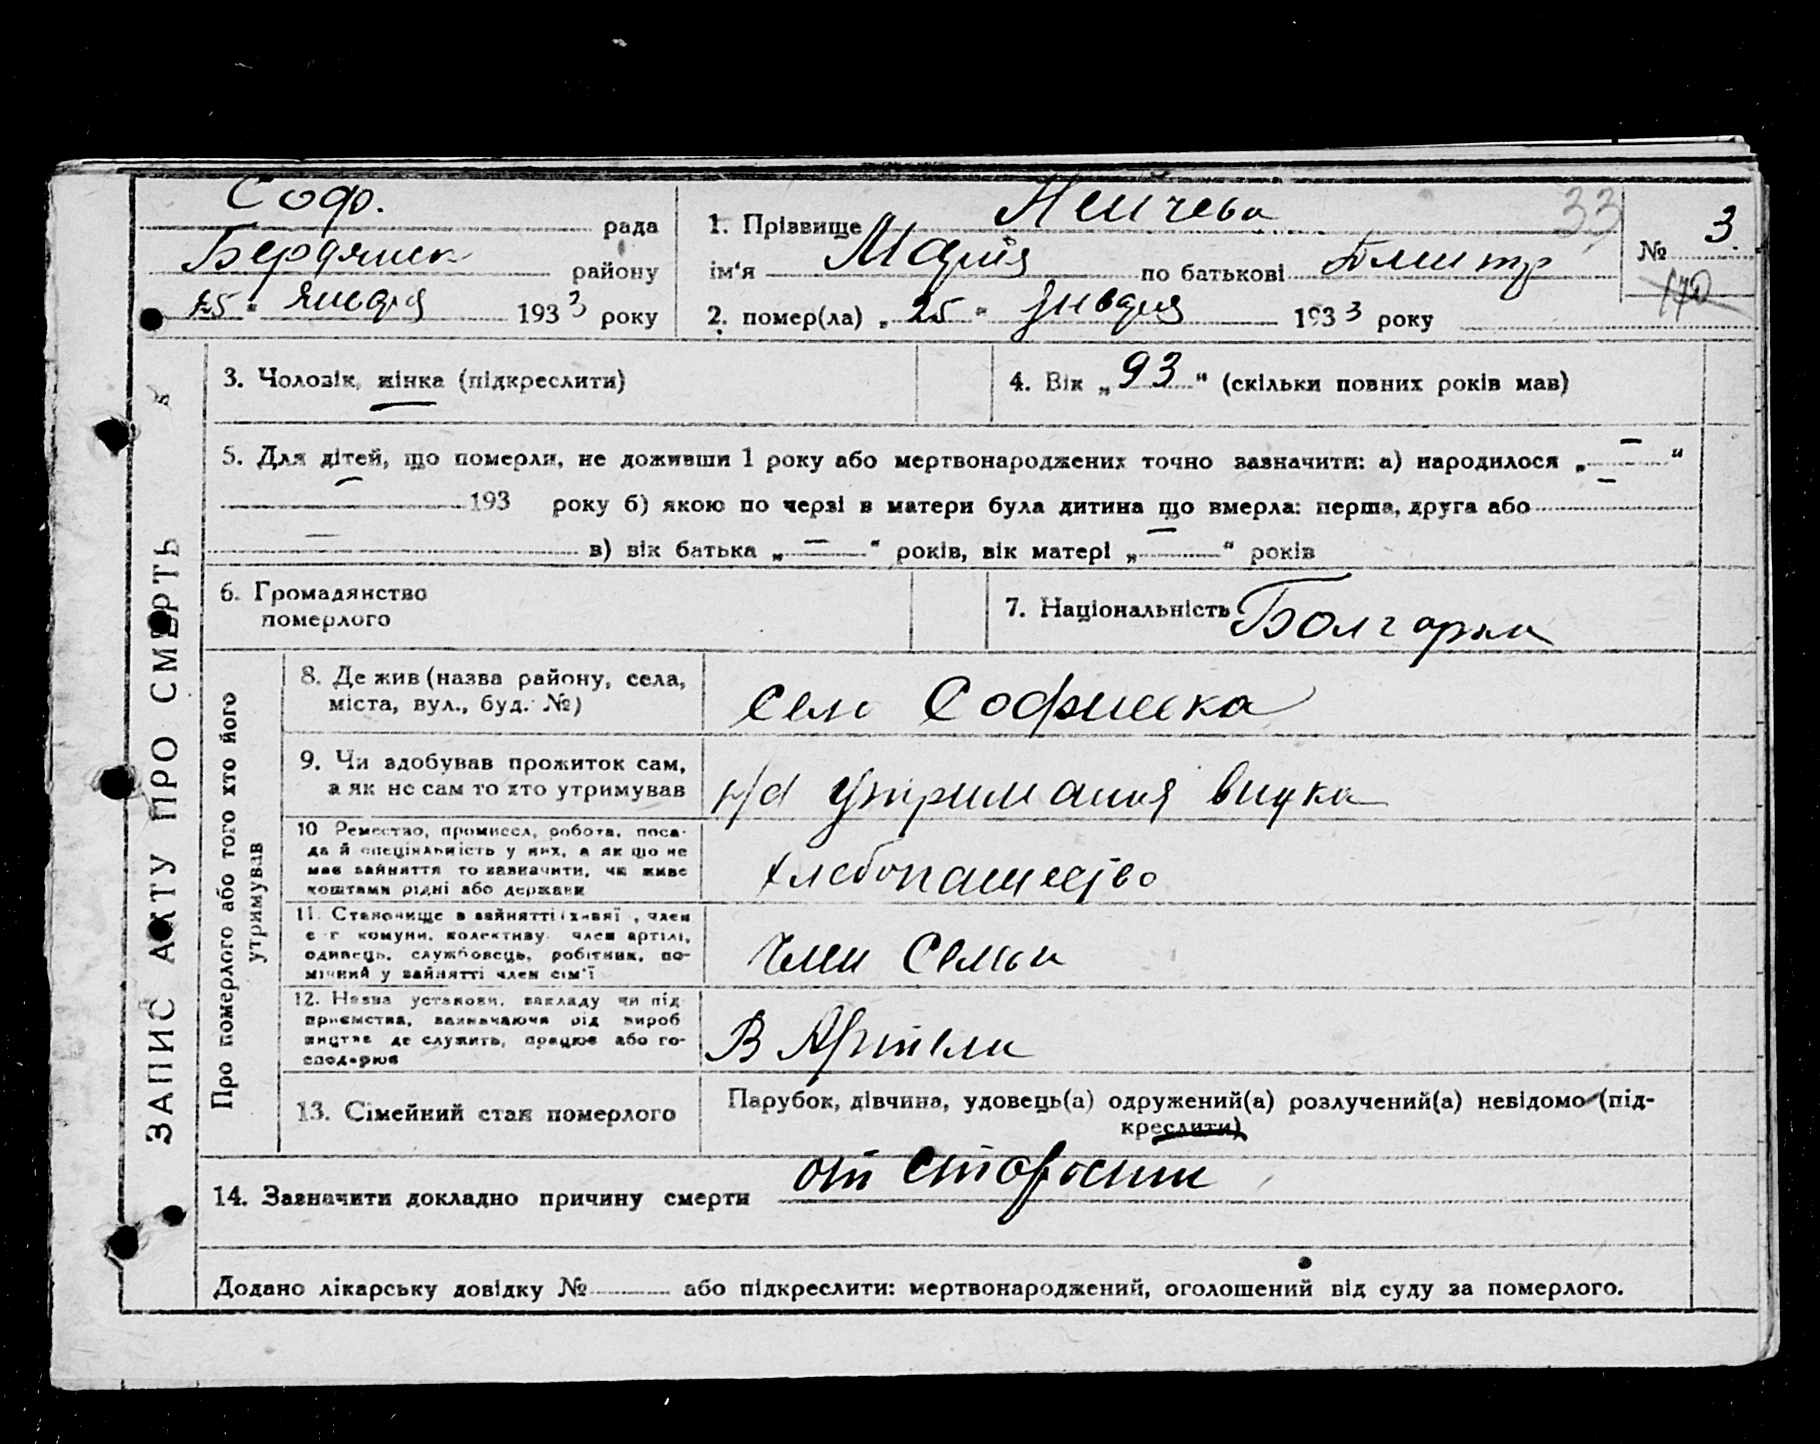 Соф. рада
Бердянск району
25 " января 1933 року
1. Прізвище Нейчева
ім'я Мария по батькові Дмитр
2. помер(ла) „ 25 " января 1933 року
33
№ 3
170
3. Чоловік, жінка (підкреслити)
4. Вік „ 93 " (скільки повних років мав)
5. Для дітей, що померли, не доживши 1 року або мертвонароджених точно зазначити: а) народилося „ — "
— 193 року б) якою по черзі в матери була дитина що вмерла: перша, друга або —
— в) вік батька „ — " років, вік матері „ — " років
6. Громадянство
померлого
7. Національність Болгарка
ЗАПИС АКТУ ПРО СМЕРТЬ
Про померлого або того хто його
утримував
8. Де жив (назва району, села,
міста, вул., буд. №)
село Софиевка
9. Чи здобував прожиток сам,
а як не сам то хто утримував
утримання внука
10 Ремество, промисел, робота, поса-
да й спеціяльність у них, а як що не
має зайняття то зазначити, чи живе
коштами рідні або держави
хлебопашество
11. Становище в зайнятті (хазяї, член
с-г комуни, колективу, член артілі,
одинець, службовець, робітник, по-
мічний у зайнятті член сім'ї
член Семьи
12. Назва установи, закладу чи під
приємства, зазначаючи рід вироб
ництва де служить, працює або го-
сподарює
В Артели
13. Сімейний стан померлого
Парубок, дівчина, удовець(а) одружений(а) розлучений(а) невідомо (під-
креслити)
14. Зазначити докладно причину смерти от старости
Додано лікарську довідку № або підкреслити: мертвонароджений, оголошений від суду за померлого.